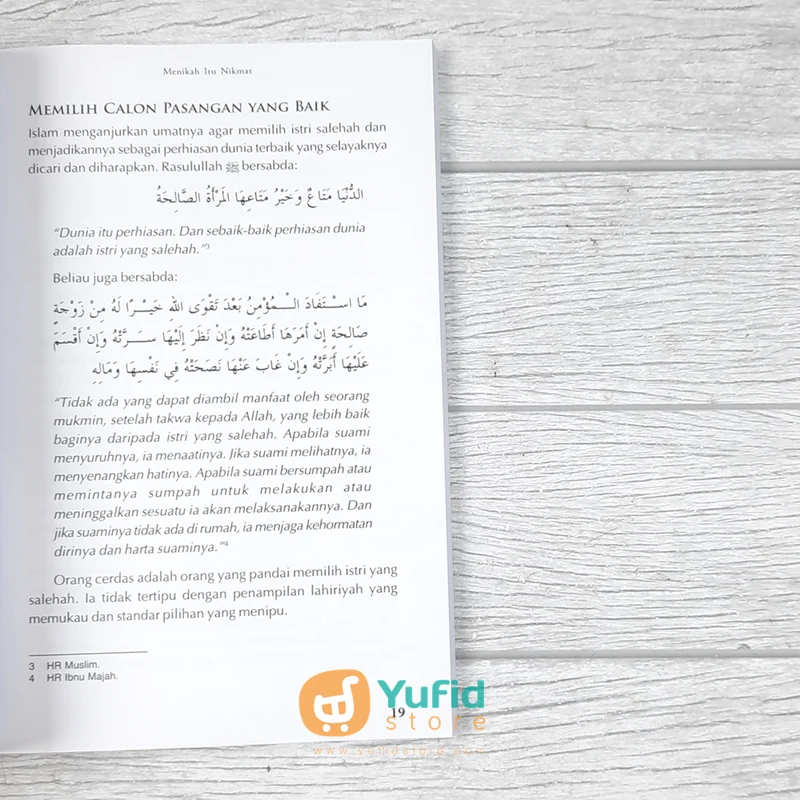 Menikah Itu Nikmat
MEMILIH CALON PASANGAN YANG BAIK
Islam menganjurkan umatnya agar memilih istri salehah dan
menjadikannya sebagai perhiasan dunia terbaik yang selayaknya
dicari dan diharapkan. Rasulullah ﷺ bersabda:
الدُّنْيَا مَتَاعٌ وَخَيْرُ مَتَاعِهَا المَرْأَةُ الصَّالِحَةُ
“Dunia itu perhiasan. Dan sebaik-baik perhiasan dunia
adalah istri yang salehah.”3
Beliau juga bersabda:
مَا اسْتَفَادَ الْمُؤْمِنُ بَعْدَ تَقْوَى اللهِ خَيْرًا لَهُ مِنْ زَوْجَةٍ
صَالِحَةٍ إِنْ أَمَرَهَا أَطَاعَتْهُ وَإِنْ نَظَرَ إِلَيْهَا سَرَّتْهُ وَإِنْ أَقْسَمَ
عَلَيْهَا أَبَرَّتْهُ وَإِنْ غَابَ عَنْهَا نَصَحَتْهُ فِي نَفْسِهَا وَمَالِهِ
“Tidak ada yang dapat diambil manfaat oleh seorang
mukmin, setelah takwa kepada Allah, yang lebih baik
baginya daripada istri yang salehah. Apabila suami
menyuruhnya, ia menaatinya. Jika suami melihatnya, ia
menyenangkan hatinya. Apabila suami bersumpah atau
memintanya sumpah untuk melakukan atau
meninggalkan sesuatu ia akan melaksanakannya. Dan
jika suaminya tidak ada di rumah, ia menjaga kehormatan
dirinya dan harta suaminya.”4
Orang cerdas adalah orang yang pandai memilih istri yang
salehah. Ia tidak tertipu dengan penampilan lahiriyah yang
memukau dan standar pilihan yang menipu.
3 HR Muslim.
4 HR Ibnu Majah.
19
Yufid
store
www.yufidstore.com